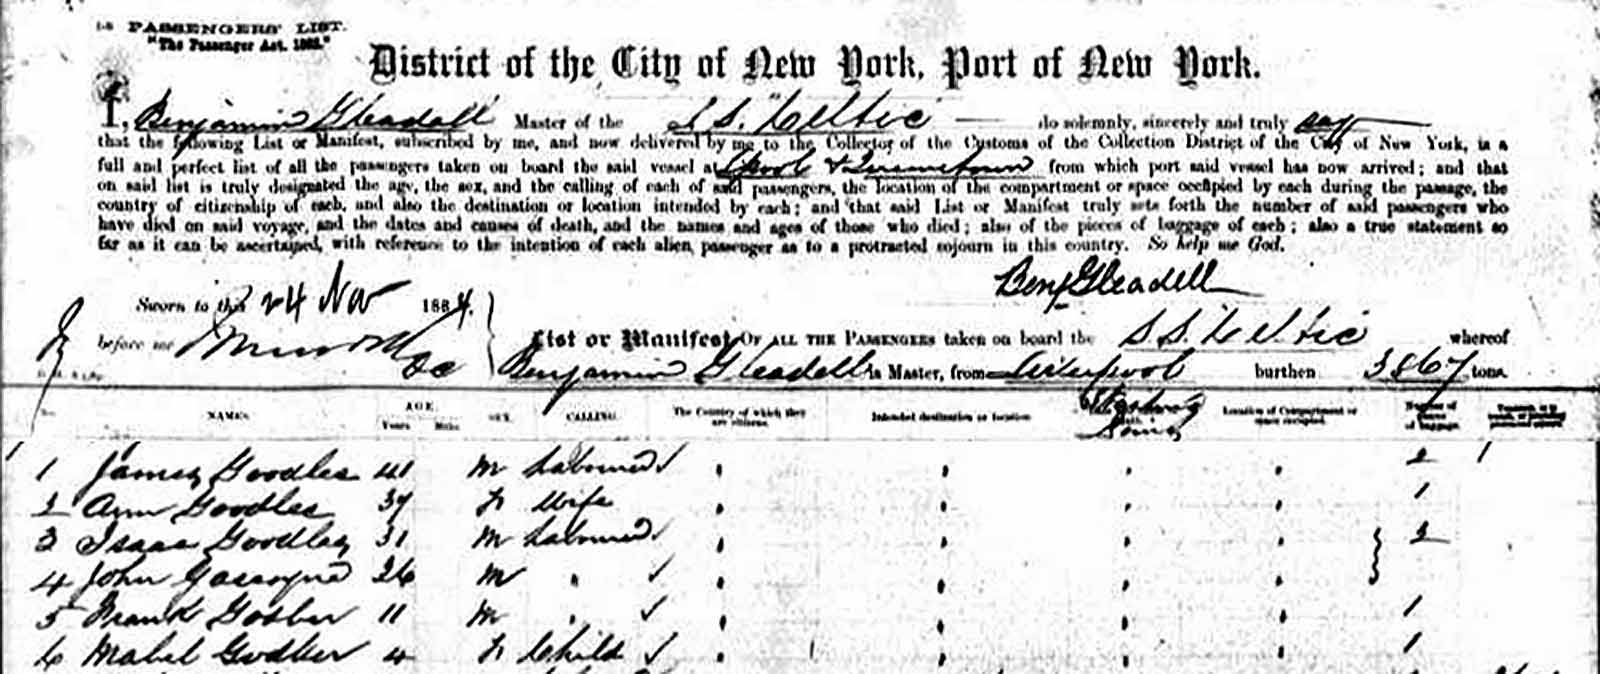 PASSENGERS' LIST.
"The Passenger Act, 1882."
District of the City of New York, Port of New York.
I, Benjamin Gleadell Master of the S.S. "Celtic" do solemnly, sincerely and truly say
that the following List or Manifest, subscribed by me, and now delivered by me to the Collector of the Customs of the Collection District of the City of New York, is a
full and perfect list of all the passengers taken on board the said vessel at L'pool & Queenstown from which port said vessel has now arrived; and that
on said list is truly designated the age, the sex, and the calling of each of said passengers, the location of the compartment or space occupied by each during the passage, the
country of citizenship of each, and also the destination or location intended by each; and that said List or Manifest truly sets forth the number of said passengers who
have died on said voyage, and the dates and causes of death, and the names and ages of those who died; also of the pieces of baggage of each; also a true statement so
far as it can be ascertained, with reference to the intention of each alien passenger as to a protracted sojourn in this country. So help me God.
Benj Gleadell
Sworn to this 24 Nov 1884.
before me
List or Manifest OF ALL THE PASSENGERS taken on board the S.S. Celtic whereof
Benjamin Gleadell is Master, from Liverpool burthen 3867 tons.
NAMES. AGE. Years Mths. SEX. CALLING. The Country of which they are citizens. Intended destination or location. Location of Compartment or space occupied. Number of Pieces of baggage.
1 James Goodles 41 M Labourer 2 1
2 Ann Goodles 37 F Wife 1
3 Isaac Goodles 31 M Labourer 2
4 John Gascoyne 26 M "
5 Frank Godber 11 M " 1
6 Mabel Godber 4 F Child 1